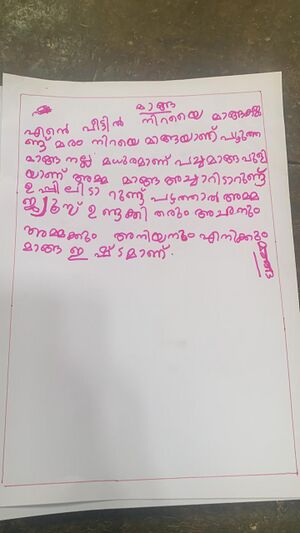 മാങ്ങ
എന്റെ വീട്ടിൽ നിറയെ മാങ്ങക്ക
ണ്ട് മരം നിറയെ മാങ്ങയാണ് പഴുത്ത
മാങ്ങ നല്ല മധുരമാണ് പച്ചമാങ്ങ പുളി
യാണ് അമ്മ മാങ്ങ അച്ചാറിടാറുണ്ട്
ഉപ്പിലിടാ റുണ്ട് പഴുത്താൽ അമ്മ
ജ്യൂസ് ഉണ്ടാക്കി തരും അച്ഛനും
അമ്മക്കും അനിയനും എനിക്കും
മാങ്ങ ഇഷ്ടമാണ്.
മാങ്ങ